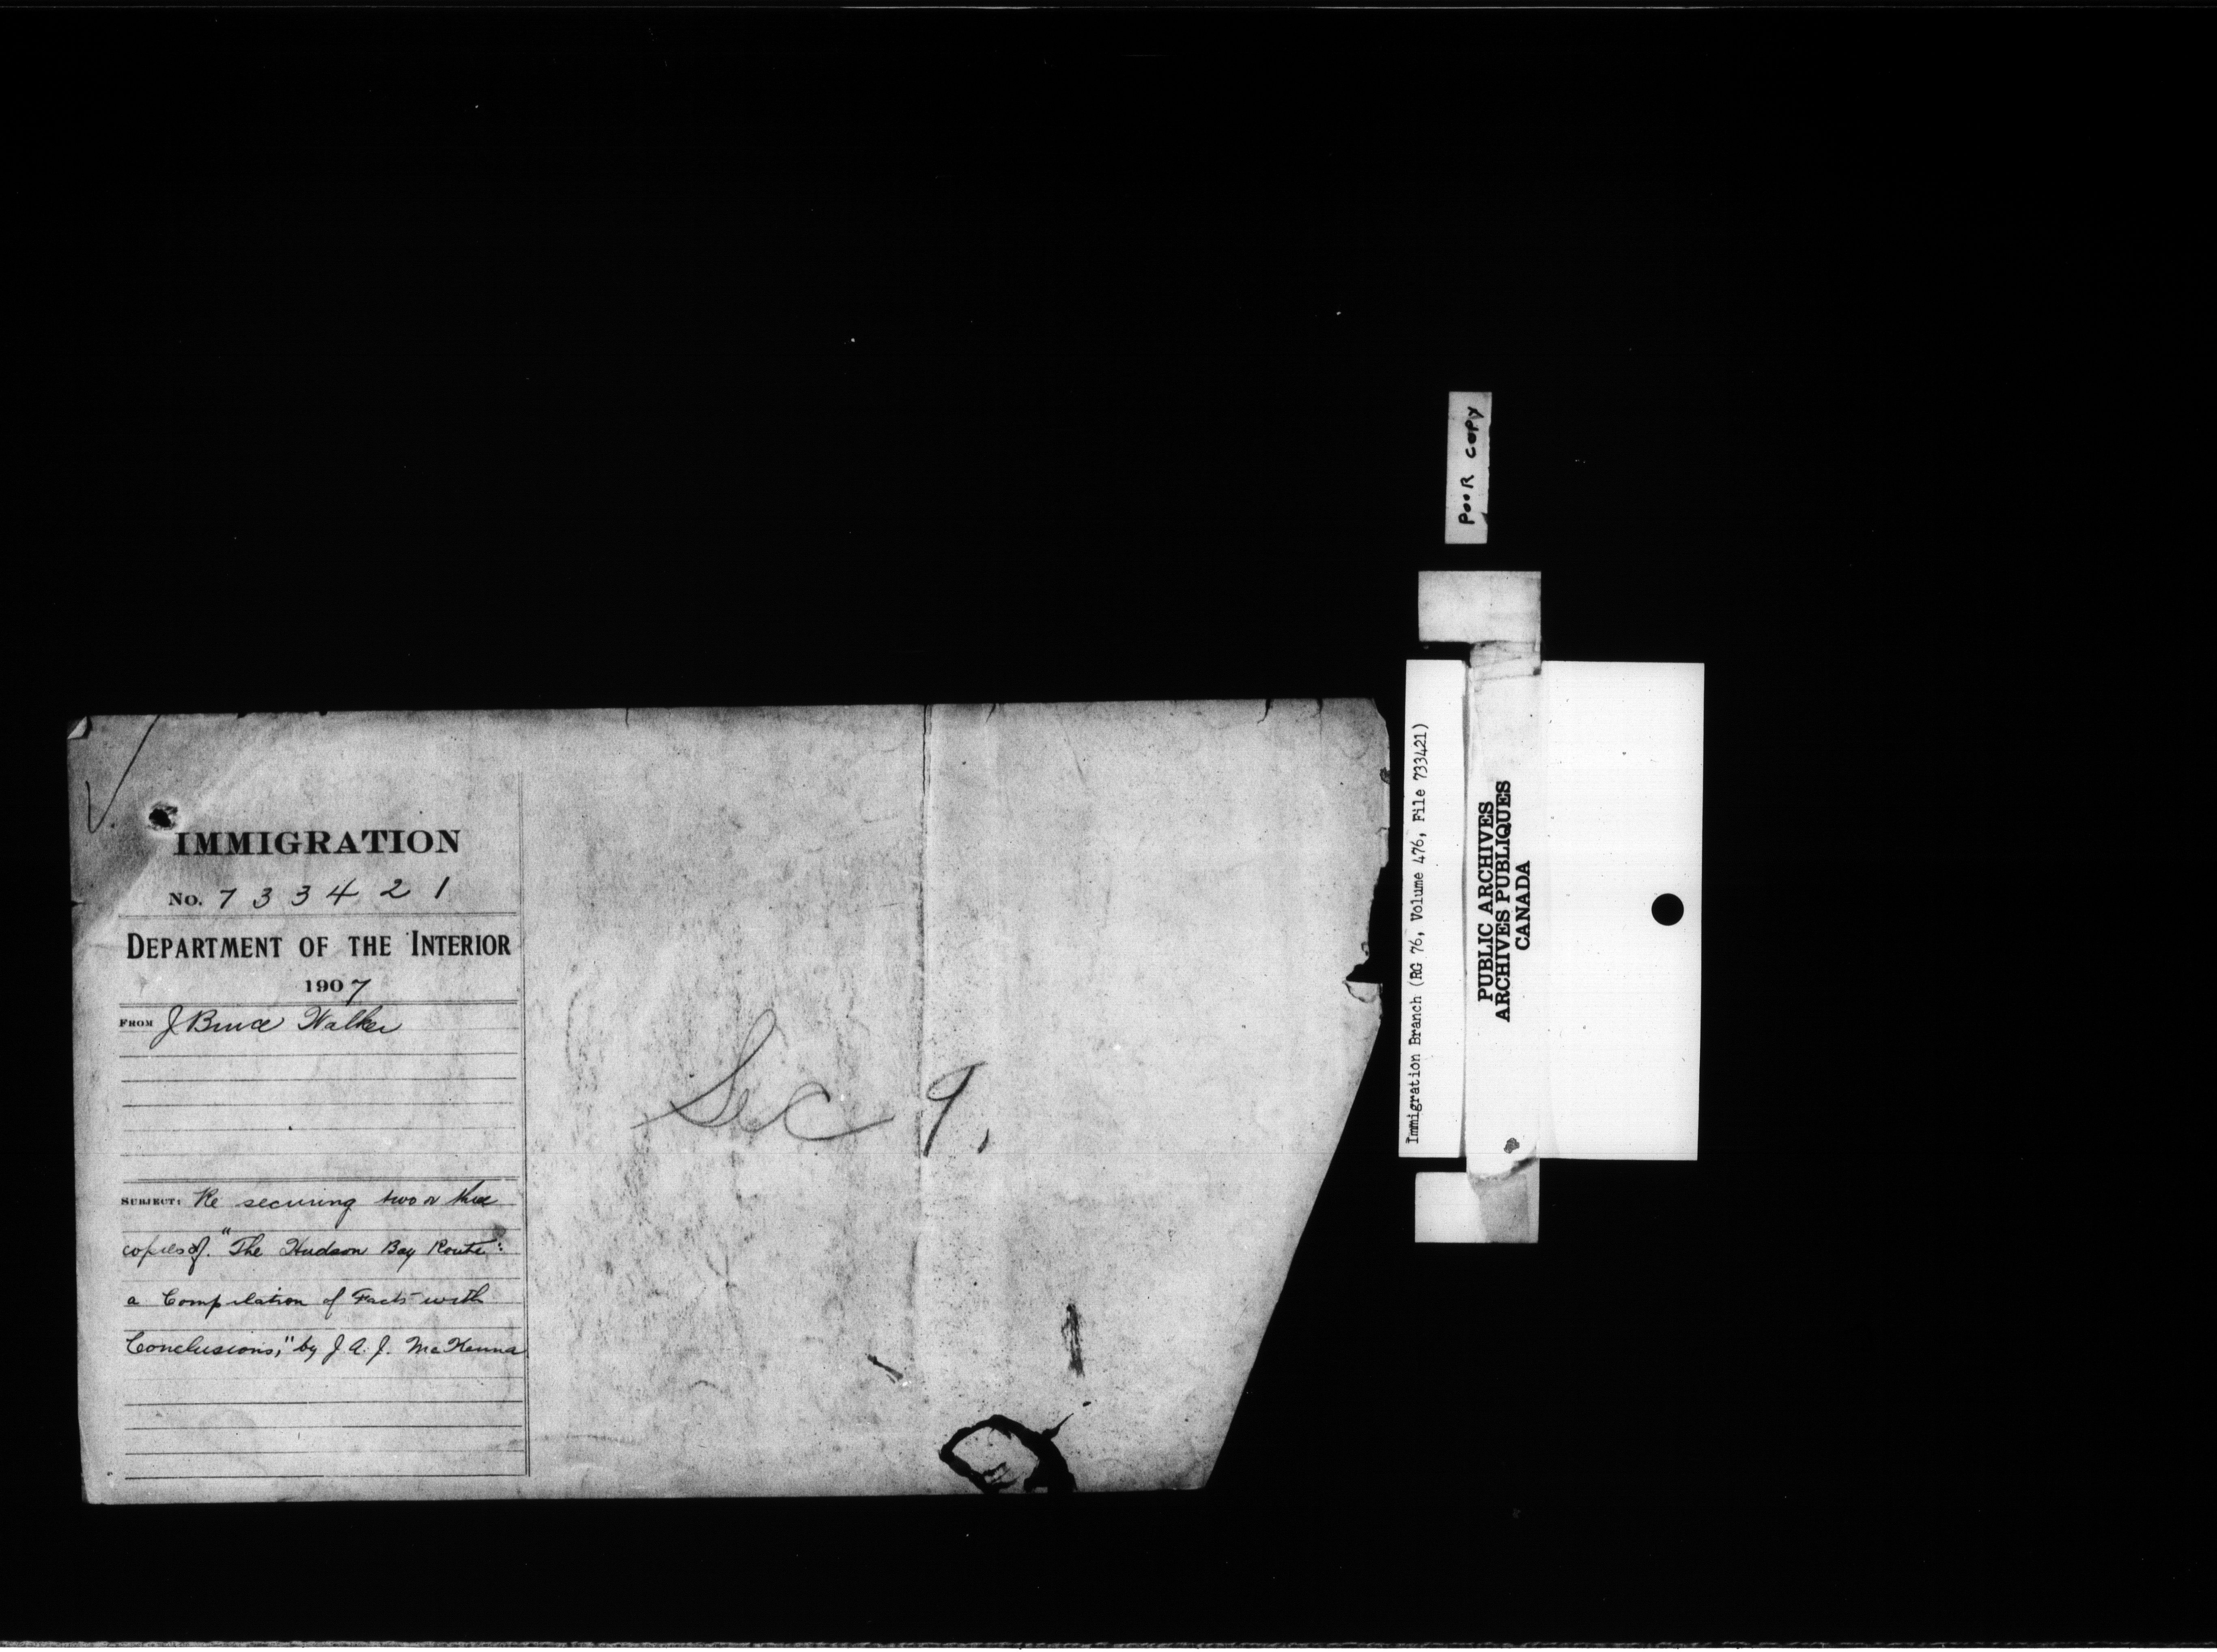 IMMIGRATION
No. 733421
DEPARTMENT OF THE INTERIOR
1907
FROM J Bruce Walker
SUBJECT: Re securing two or three
copies of. "The Hudson Bay Route:
a Compilation of Facts with
Conclusions," by J. A. J. McKenna
Sec 9.
POOR COPY
Immigration Branch (RG 76, Volume 476, File 733421)
PUBLIC ARCHIVES
ARCHIVES PUBLIQUES
CANADA